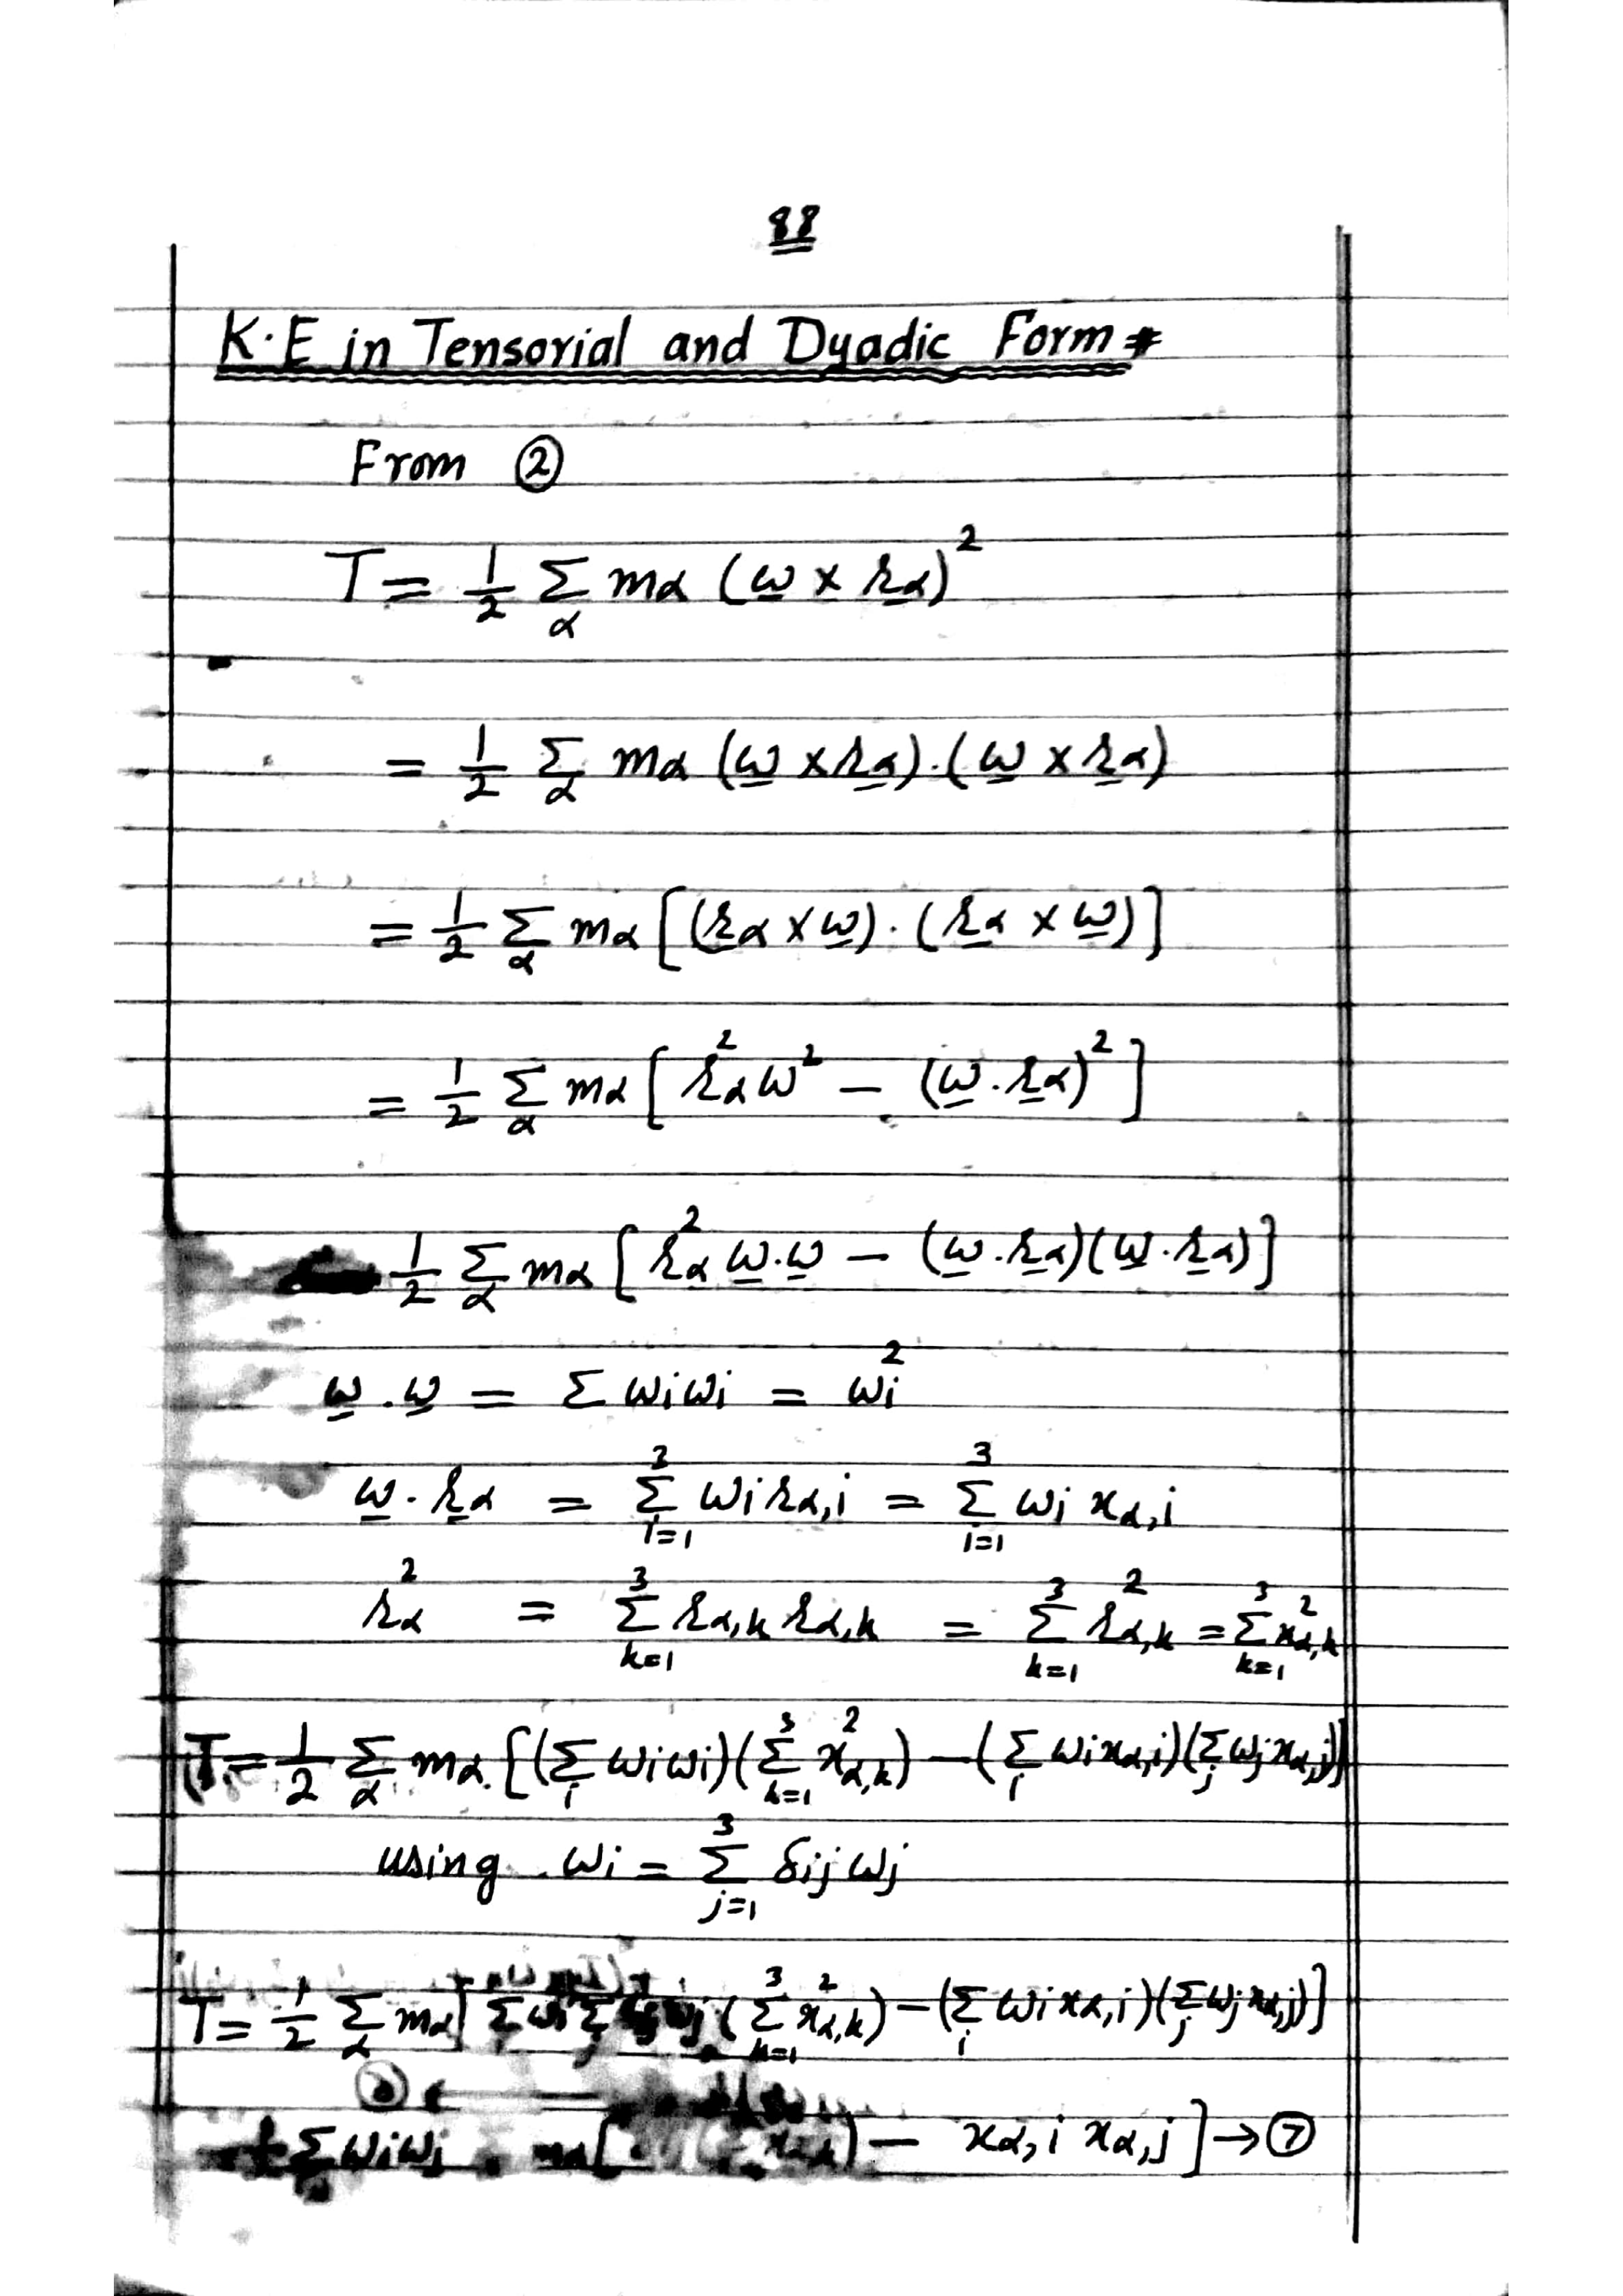 88
K.E in Tensorial and Dyadic Form
From ②
T = 1/2 Σ_α mα (ω × rα)²
= 1/2 Σ_α mα (ω × rα).(ω × rα)
= 1/2 Σ_α mα [(rα × ω).(rα × ω)]
= 1/2 Σ_α mα [rα² ω² − (ω.rα)²]
1/2 Σ_α mα [rα² ω.ω − (ω.rα)(ω.rα)]
ω.ω = Σ ωiωi = ωi²
ω.rα = Σ_{i=1}^{3} ωi rα,i = Σ_{i=1}^{3} ωi xα,i
rα² = Σ_{k=1}^{3} rα,k rα,k = Σ_{k=1}^{3} r²α,k = Σ_{k=1}^{3} x²α,k
T = 1/2 Σ_α mα [(Σ_i ωiωi)(Σ_{k=1}^{3} x²α,k) − (Σ_i ωi xα,i)(Σ_j ωj xα,j)]
using ωi = Σ_{j=1}^{3} δij ωj
T = 1/2 Σ_α mα [Σ ωi Σ_j (Σ_{k=1}^{3} x²α,k) − (Σ_i ωi xα,i)(Σ_j ωj xα,j)]
Σ ωiωj mα [ ) − xα,i xα,j] → ⑦